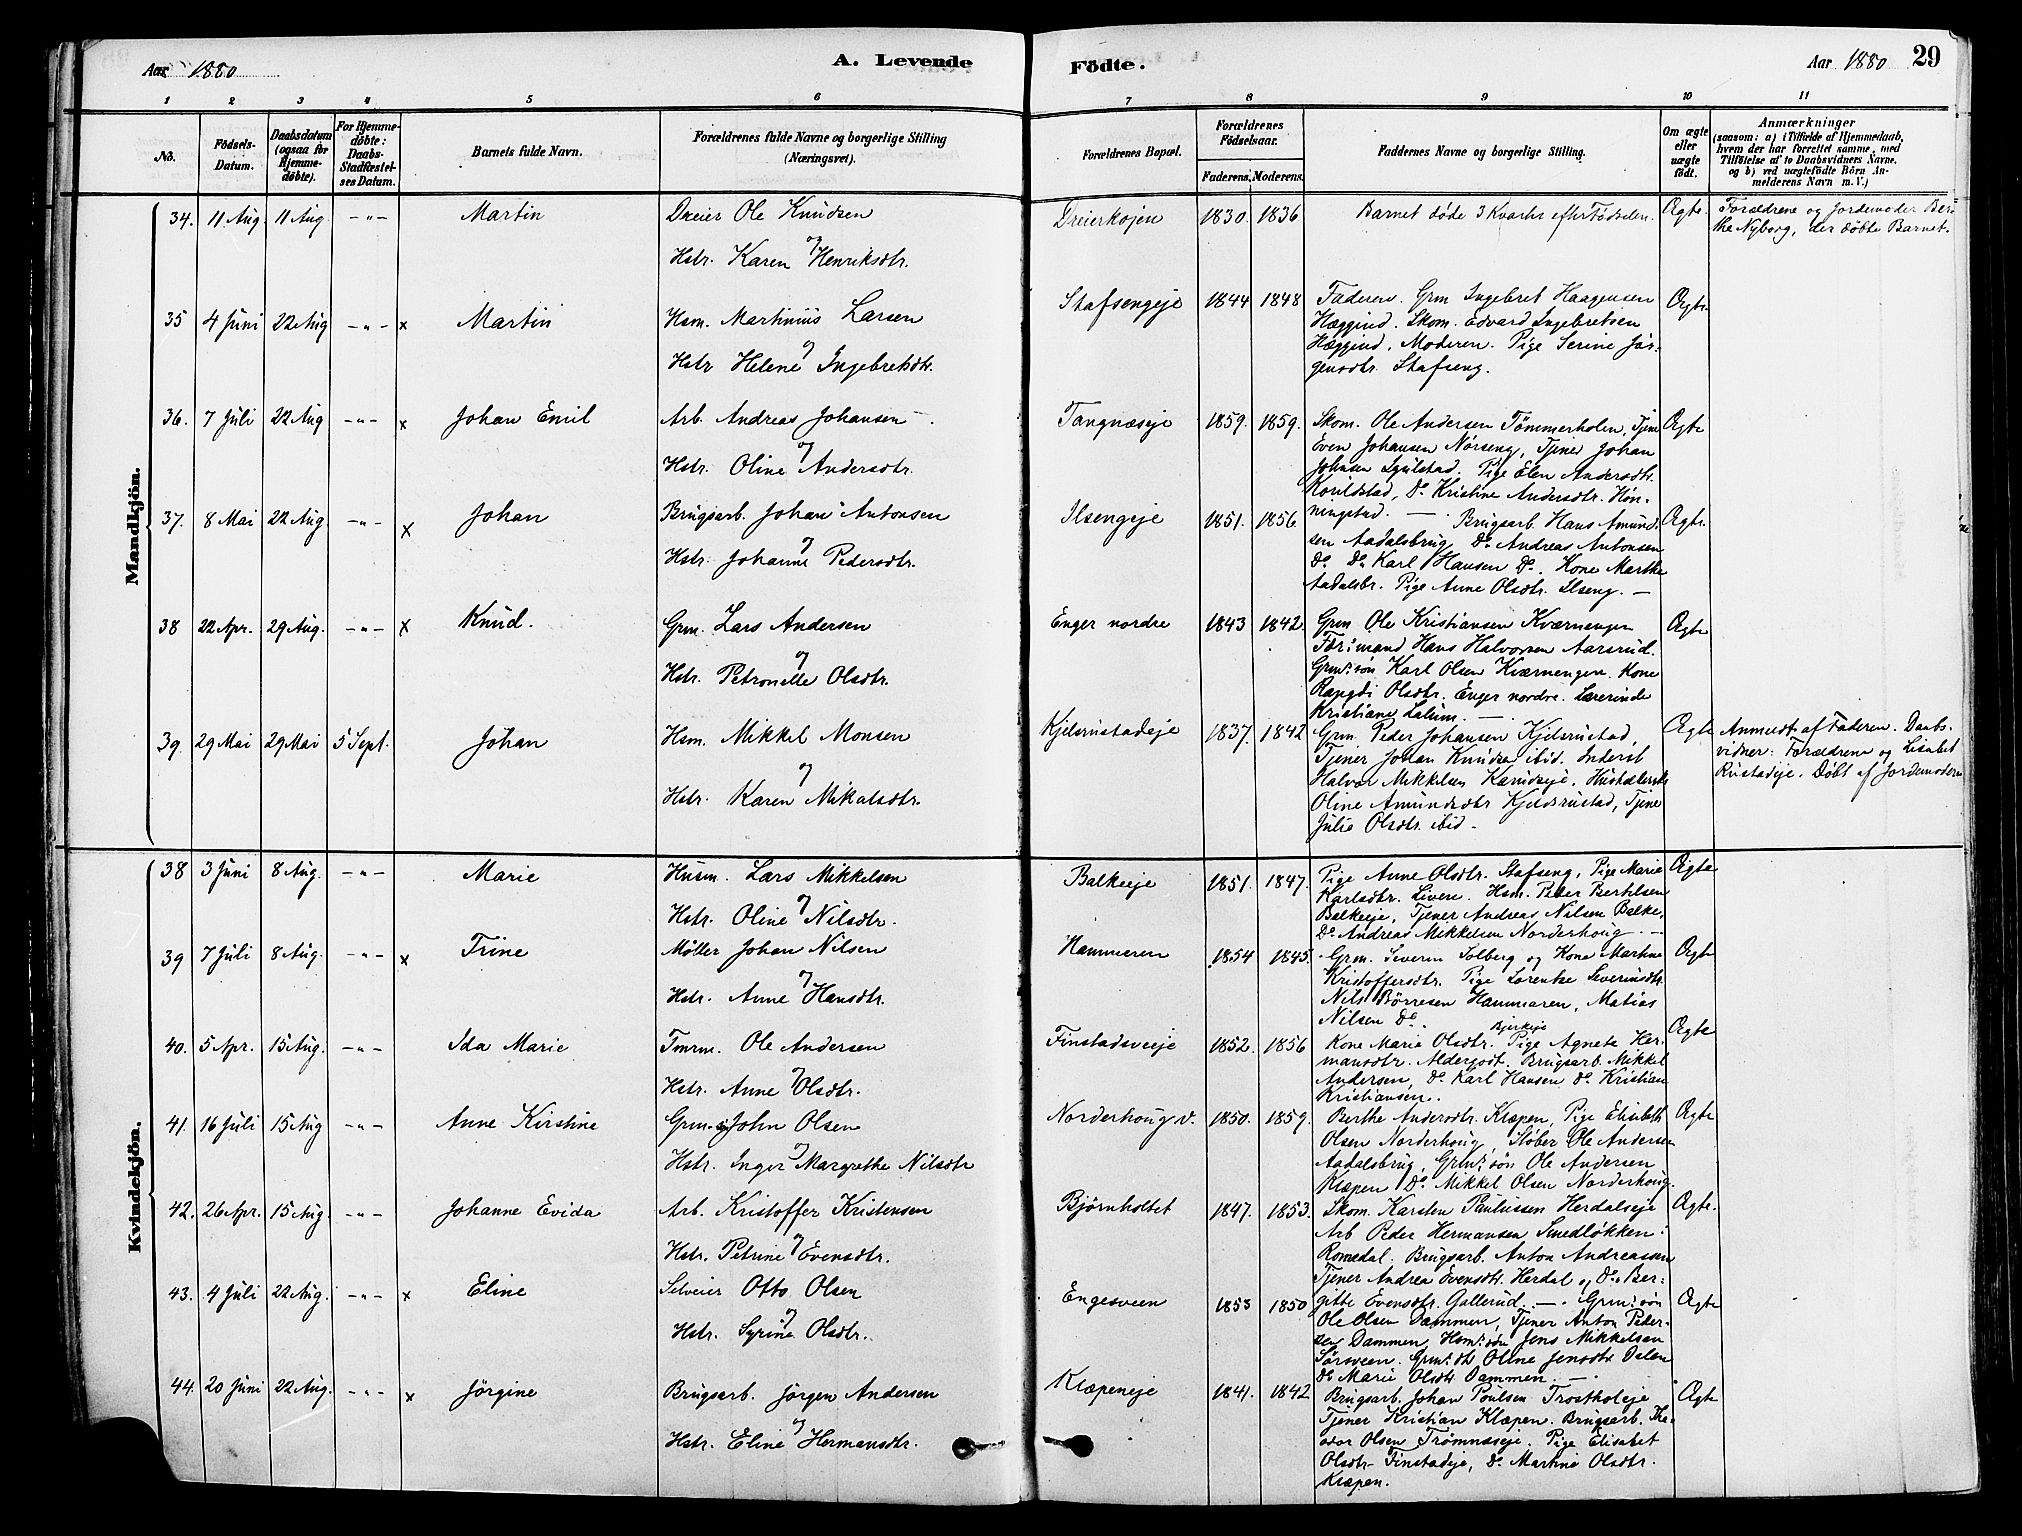 Aar 1880
A. Levende
Födte.
Aar 1880
29
1 2 3 4 5 6 7 8 9 10 11
No.
Födsels-Datum.
Daabsdatum (ogsaa for Hjemme-döbte).
For Hjemme-döbte: Daabs-Stadfæstel-ses Datum.
Barnets fulde Navn.
Forældrenes fulde Navne og borgerlige Stilling (Næringsvei).
Forældrenes Bopæl.
Forældrenes Födselsaar.
Faderens. Moderens.
Faddernes Navne og borgerlige Stilling.
Om ægte eller uægte födt.
Anmærkninger
(saasom: a) i Tilfælde af Hjemmedaab,
hvem der har forrettet samme, med
Tilföielse af to Daabsvidners Navne.
og b) ved uægtefödte Börn An-
melderens Navn m. V.)
Mandkjön.
34. 11 Aug 11 Aug -"- Martin Dreier Ole Knudsen
og
Hstr. Karen Henriksdtr.
Dreierkojen 1830. 1836 Barnet døde 3 Kvarter efter Fødselen. Ægte.
Forældrene og Jordemoder Ber-
the Nyborg, der døbte Barnet.
35 4 Juni 22 Aug -"- x Martin Hsm. Martinius Larsen
og
Hstr Helene Ingebretsdtr.
Stafsengeje 1844 1848 Faderen. Grm Ingebret Haagensen Ægte.
Hæggind. Skom. Edvard Ingebretsen
Hæggind, Moderen. Pige Serine Jør-
gensdtr. Stafseng.
36. 7 Juli 22 Aug -"- x Johan Emil Arb. Andreas Johansen
og
Hstr. Oline Andersdtr.
Tangnæseje 1859. 1859. Skom. Ole Andersen Tømmerholen, Tjen Ægte
Even Johansen Nørseng, Tjener Johan
Johnsen. Pige Elen Andersdtr.
Korildstad, Do Kristine Andersdtr. Høn-
ningstad.
37. 8 Mai 22 Aug -"- x Johan Brugsarb. Johan Antonsen
og
Hstr. Johanne Pedersdtr.
Ilsengeje 1851. 1856 Brugsarb. Hans Amund- Ægte.
sen Aadalsbrug, Do Andreas Antonsen
Do. Do Karl Hansen Do. Kone Marthe
Aadalsbr. Pige Anne Olsdtr. Ilseng.
38 22 Apr. 29 Aug. -"- x Knud. Grm. Lars Andersen
og
Hstr. Petronelle Olsdtr.
Enger nordre 1843 1842. Grm Ole Kristiansen Kværnengen Ægte
Formand Hans Halvorsen Aarsrud.
Grm.søn Karl Olsen Kværnengen. Kone
Rangdi Olsdtr. Enger nordre. Lærerinde
Kristiane Lalum.
39. 29 Mai 29 Mai 5 Sept. Johan Hsm. Mikkel Monsen
og
Hstr. Karen Mikalsdtr.
Kjelsrustadeje 1837. 1842 Grm. Peder Johansen Kjelsrustad Ægte
Tjener Johan Knudsen ibid. Inderst
Halvor Mikkelsen. Husholderske
Oline Amundsdtr Kjelsrustad, Tjene
Julie Olsdtr. ibid.
Anmeldt af Faderen. Daabs-
vidner: Forældrene og Lisabet
Rustadeje. Døbt af Jordemoderen
Kvindekjön.
38 3 Juni 8 Aug. -"- Marie Husm. Lars Mikkelsen
og
Hstr. Oline Nilsdtr.
Balkeeje 1851. 1847. Pige Anne Olsdtr. Stafseng, Pige Marie Ægte
Karlsdtr. Liven. Hsm. Peder Bertelsen
Balkeeje, Tjener Andreas Nilsen Balke,
Do. Andreas Mikkelsen Norderhoug.
39 7 Juli 8 Aug. -"- x Trine Møller Johan Nilsen
og
Hstr. Anne Hansdtr.
Hammeren 1854 1845. Grm. Severin Solberg og Kone Marthe Ægte
Kristoffersdtr. Pige Lorentse Severinsdtr.
Nils Børresen Hammaren, Matias
Nilsen Do.
40. 5 Apr. 15 Aug. -"- Ida Marie Tmrm. Ole Andersen
og
Hstr. Anne Olsdtr.
Finstadsveeje 1852. 1856 Kone Marie Olsdtr. Bjerkeje Pige Agnete Her- Ægte
mansdtr. Aldergodt. Brugsarb. Mikkel
Andersen, Do. Karl Hansen Do. Kristian
Kristiansen.
41. 16 Juli 15 Aug -"- Anne Kirstine Grm. John Olsen
og
Hstr. Inger Margrethe Nilsdtr
Norderhoug v. 1850. 1859. Berthe Andersdtr. Klæpen, Pige Elisabeth Ægte
Olsen Norderhoug, Støber Ole Andersen
Aadalsbrug, Grm.søn Ole Andersen
Klæpen Do. Mikkel Olsen Norderhoug.
42. 26 Apr. 15 Aug. -"- Johanne Evida Arb. Kristoffer Kristensen
og
Hstr. Petrine Evensdtr.
Bjørnholtet 1847. 1853. Skom. Karsten Paulussen Herdalseje Ægte.
Arb Peder Hermansen Smedløkken i
Romedal. Brugsarb. Anton Andreassen
Tjener Andrea Evensdtr. Herdal og Do. Ber-
gitte Evensdtr. Gallerud.
43. 4 Juli 22 Aug. -"- x Eline Selveier Otto Olsen
og
Hstr. Syrine Olsdtr.
Engesveen 1853 1850 Grm.søn Ægte
Ole Olsen Dammen, Tjener Anton Peder-
sen Dammen, Hsm.søn Jens Mikkelsen
Sørsveen. Grm.dtr Oline Jensdtr Dalen
Do. Marie Olsdtr. Dammen.
44. 20 Juni 22 Aug. -"- x Jörgine Brugsarb. Jörgen Andersen
og
Hstr. Eline Hermansdtr.
Klæpeneje 1841. 1842 Brugsarb. Johan Poulsen Trostholeje Ægte
Tjener Kristian Klæpen. Brugsarb. The-
odor Olsen Trømnæseje. Pige Elisabet
Olsdtr Finstadeje, Do. Martine Olsdtr.
Klæpen.